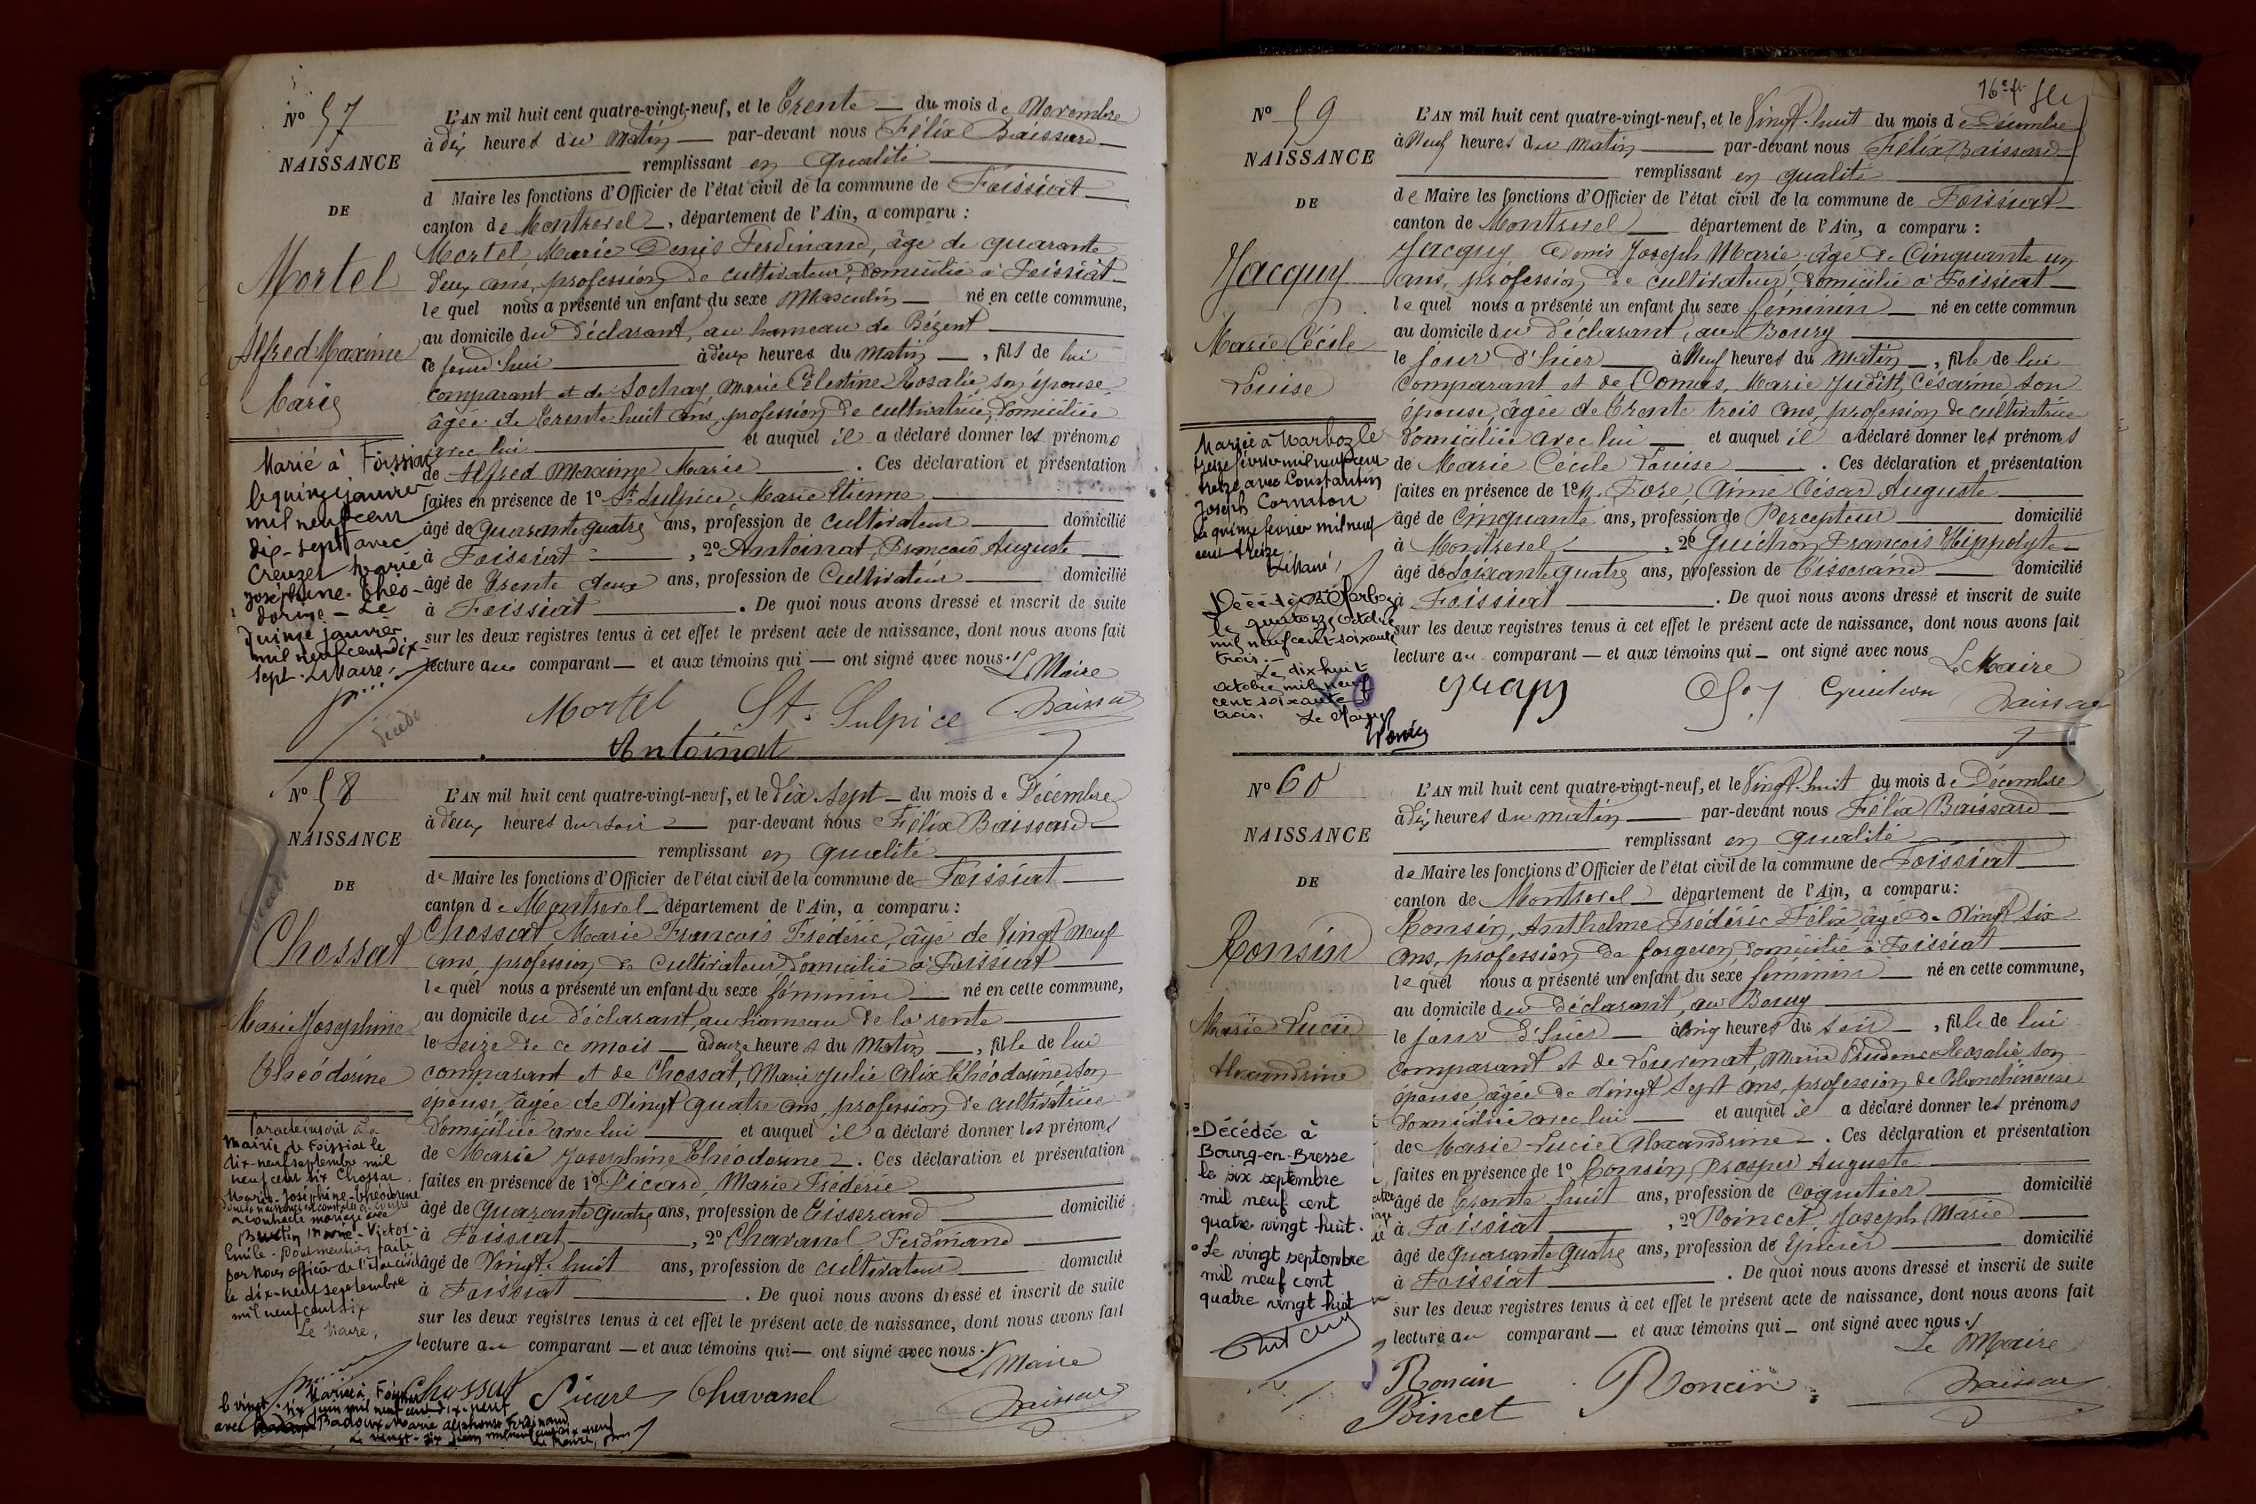 N° 57
NAISSANCE
DE
Mortel
Alfred Maxime
Marie
Marié à Foissiat
le quinze janvier
mil neuf cent
dix-sept avec
Creuzet Marie
Joséphine Théo-
dorine - Le
quinze janvier
mil neuf cent dix-
sept. Le Maire,
décédé
L'AN mil huit cent quatre-vingt-neuf, et le Trente du mois de Novembre
à dix heures du Matin par-devant nous Félix Baissard
remplissant en qualité
d Maire les fonctions d'Officier de l'état civil de la commune de Foissiat
canton de Montrevel, département de l'Ain, a comparu :
Mortel Marie Denis Ferdinand, âgé de quarante
deux ans, profession de cultivateur, domicilié à Foissiat
lequel nous a présenté un enfant du sexe Masculin né en cette commune,
au domicile du déclarant, au hameau de Bézent
ce jourd'hui à deux heures du matin, fils de lui
comparant et de Sochay Marie Célestine Rosalie son épouse
âgée de Trente huit ans, profession de cultivatrice, domiciliée
avec lui et auquel il a déclaré donner les prénoms
de Alfred Maxime Marie. Ces déclaration et présentation
faites en présence de 1° St Sulpice Marie Etienne
âgé de quarante quatre ans, profession de cultivateur domicilié
à Foissiat, 2° Antoinat, François Auguste
âgé de Trente deux ans, profession de Cultivateur domicilié
à Foissiat. De quoi nous avons dressé et inscrit de suite
sur les deux registres tenus à cet effet le présent acte de naissance, dont nous avons fait
lecture au comparant — et aux témoins qui — ont signé avec nous.
Le Maire
Mortel St. Sulpice Baissard
Antoinat
N° 58
NAISSANCE
DE
Chossat
Marie Joséphine
Théodorine
Par acte inscrit à la
Mairie de Foissiat le
dix-neuf septembre mil
neuf cent six Chossat
Marie-Joséphine-Théodorine
dont la naissance est constatée ci-contre
a contracté mariage avec
Buttin Marie-Victor-
Emile - Dont mention faite
par nous officier de l'état civil
le dix-neuf septembre
mil neuf cent six
Le Maire,
L'AN mil huit cent quatre-vingt-neuf, et le dix Sept du mois de Décembre
à deux heures du soir par-devant nous Félix Baissard
remplissant en qualité
de Maire les fonctions d'Officier de l'état civil de la commune de Foissiat
canton de Montrevel département de l'Ain, a comparu :
Chossat Marie François Frédéric, âgé de Vingt neuf
ans, profession de cultivateur domicilié à Foissiat
lequel nous a présenté un enfant du sexe féminin né en cette commune,
au domicile du déclarant, au hameau de la rente
le seize de ce mois à douze heures du Matin, fille de lui
comparant et de Chossat, Marie Julie Alix Théodorine son
épouse, âgée de Vingt quatre ans, profession de cultivatrice
domiciliée avec lui et auquel il a déclaré donner les prénoms
de Marie Joséphine Théodorine. Ces déclaration et présentation
faites en présence de 1° Picard, Marie Frédéric
âgé de quarante quatre ans, profession de Tisserand domicilié
à Foissiat, 2° Chavanel Ferdinand
âgé de Vingt huit ans, profession de cultivateur domicilié
à Foissiat. De quoi nous avons dressé et inscrit de suite
sur les deux registres tenus à cet effet le présent acte de naissance, dont nous avons fait
lecture au comparant — et aux témoins qui — ont signé avec nous.
Le Maire
Chossat Picard Chavanel Baissard
Mariée à Foissiat
le vingt-six juin mil neuf cent dix-neuf
avec Badoux Marie Alphonse Ferdinand
Le vingt-six juin mil neuf cent dix-neuf
Le Maire,
16e f.
N° 59
NAISSANCE
DE
Jacquy
Marie Cécile
Louise
Mariée à Marboz le
treize février mil neuf cent
treize avec Constantin
Joseph Cornaton
Le quinze février mil neuf
cent treize
Le Maire,
Décédée à Marboz
le quatorze octobre
mil neuf cent-soixante
trois.-
Le dix-huit
octobre mil neuf
cent soixante
trois. Le Maire
L'AN mil huit cent quatre-vingt-neuf, et le Vingt-huit du mois de Décembre
à Neuf heures du matin par-devant nous Félix Baissard
remplissant en qualité
de Maire les fonctions d'Officier de l'état civil de la commune de Foissiat
canton de Montrevel département de l'Ain, a comparu :
Jacquy Denis Joseph Marie, âgé de Cinquante un
ans, profession de cultivateur, domicilié à Foissiat
lequel nous a présenté un enfant du sexe féminin né en cette commun
au domicile du déclarant, au Bourg
le jour d'hier à Neuf heures du Matin, fille de lui
comparant et de Comas, Marie Judith Césarine son
épouse, âgée de Trente trois ans, profession de cultivatrice
domiciliée avec lui et auquel il a déclaré donner les prénoms
de Marie Cécile Louise. Ces déclaration et présentation
faites en présence de 1° M. Fore, Aimé César Auguste
âgé de Cinquante ans, profession de Percepteur domicilié
à Montrevel, 2° Guichon François Hippolyte
âgé de Soixante quatre ans, profession de Tisserand domicilié
à Foissiat. De quoi nous avons dressé et inscrit de suite
sur les deux registres tenus à cet effet le présent acte de naissance, dont nous avons fait
lecture au comparant — et aux témoins qui — ont signé avec nous
Le Maire
Guichon Baissard
N° 60
NAISSANCE
DE
Ronsin
Marie Lucie
Alexandrine
°Décédée à
Bourg-en-Bresse
le six septembre
mil neuf cent
quatre vingt huit.
°Le vingt septembre
mil neuf cent
quatre vingt huit
L'AN mil huit cent quatre-vingt-neuf, et le Vingt-huit du mois de Décembre
à dix heures du matin par-devant nous Félix Baissard
remplissant en qualité
de Maire les fonctions d'Officier de l'état civil de la commune de Foissiat
canton de Montrevel département de l'Ain, a comparu :
Ronsin, Anthelme Frédéric Félix âgé de Vingt six
ans, profession de forgeron, domicilié à Foissiat
lequel nous a présenté un enfant du sexe féminin né en cette commune,
au domicile du déclarant, au Bourg
le jour d'hier à cinq heures du soir, fille de lui
comparant et de Louvenat, Marie Prudence Rosalie son
épouse âgée de Vingt Sept ans, profession de Blanchisseuse
domiciliée avec lui et auquel il a déclaré donner les prénoms
de Marie Lucie Alexandrine. Ces déclaration et présentation
faites en présence de 1° Ronsin, Prosper Auguste
âgé de Trente huit ans, profession de Coquetier domicilié
à Foissiat, 2° Poincet, Joseph Marie
âgé de quarante quatre ans, profession de Epicier domicilié
à Foissiat. De quoi nous avons dressé et inscrit de suite
sur les deux registres tenus à cet effet le présent acte de naissance, dont nous avons fait
lecture au comparant — et aux témoins qui — ont signé avec nous.
Le Maire
Roncin Roncin Baissard
Poincet